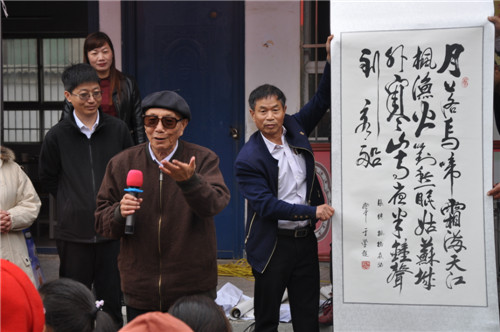 月落烏啼霜滿天江
楓漁火對愁眠姑蘇城
外寒山寺夜半鐘聲
到客船
張繼楓橋夜泊